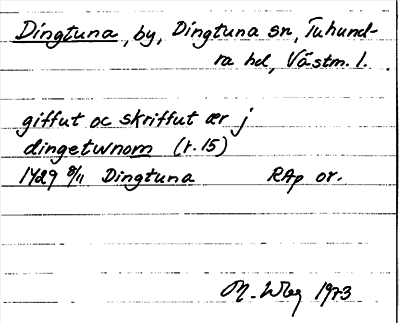 Dingtuna, by, Dingtuna sn, Tuhund-
ra hd, Västm. l.
giffut oc skriffut ær j
dingetwnom (r. 15)
1429 8/11 Dingtuna RAp or.
M. Wbg 1973